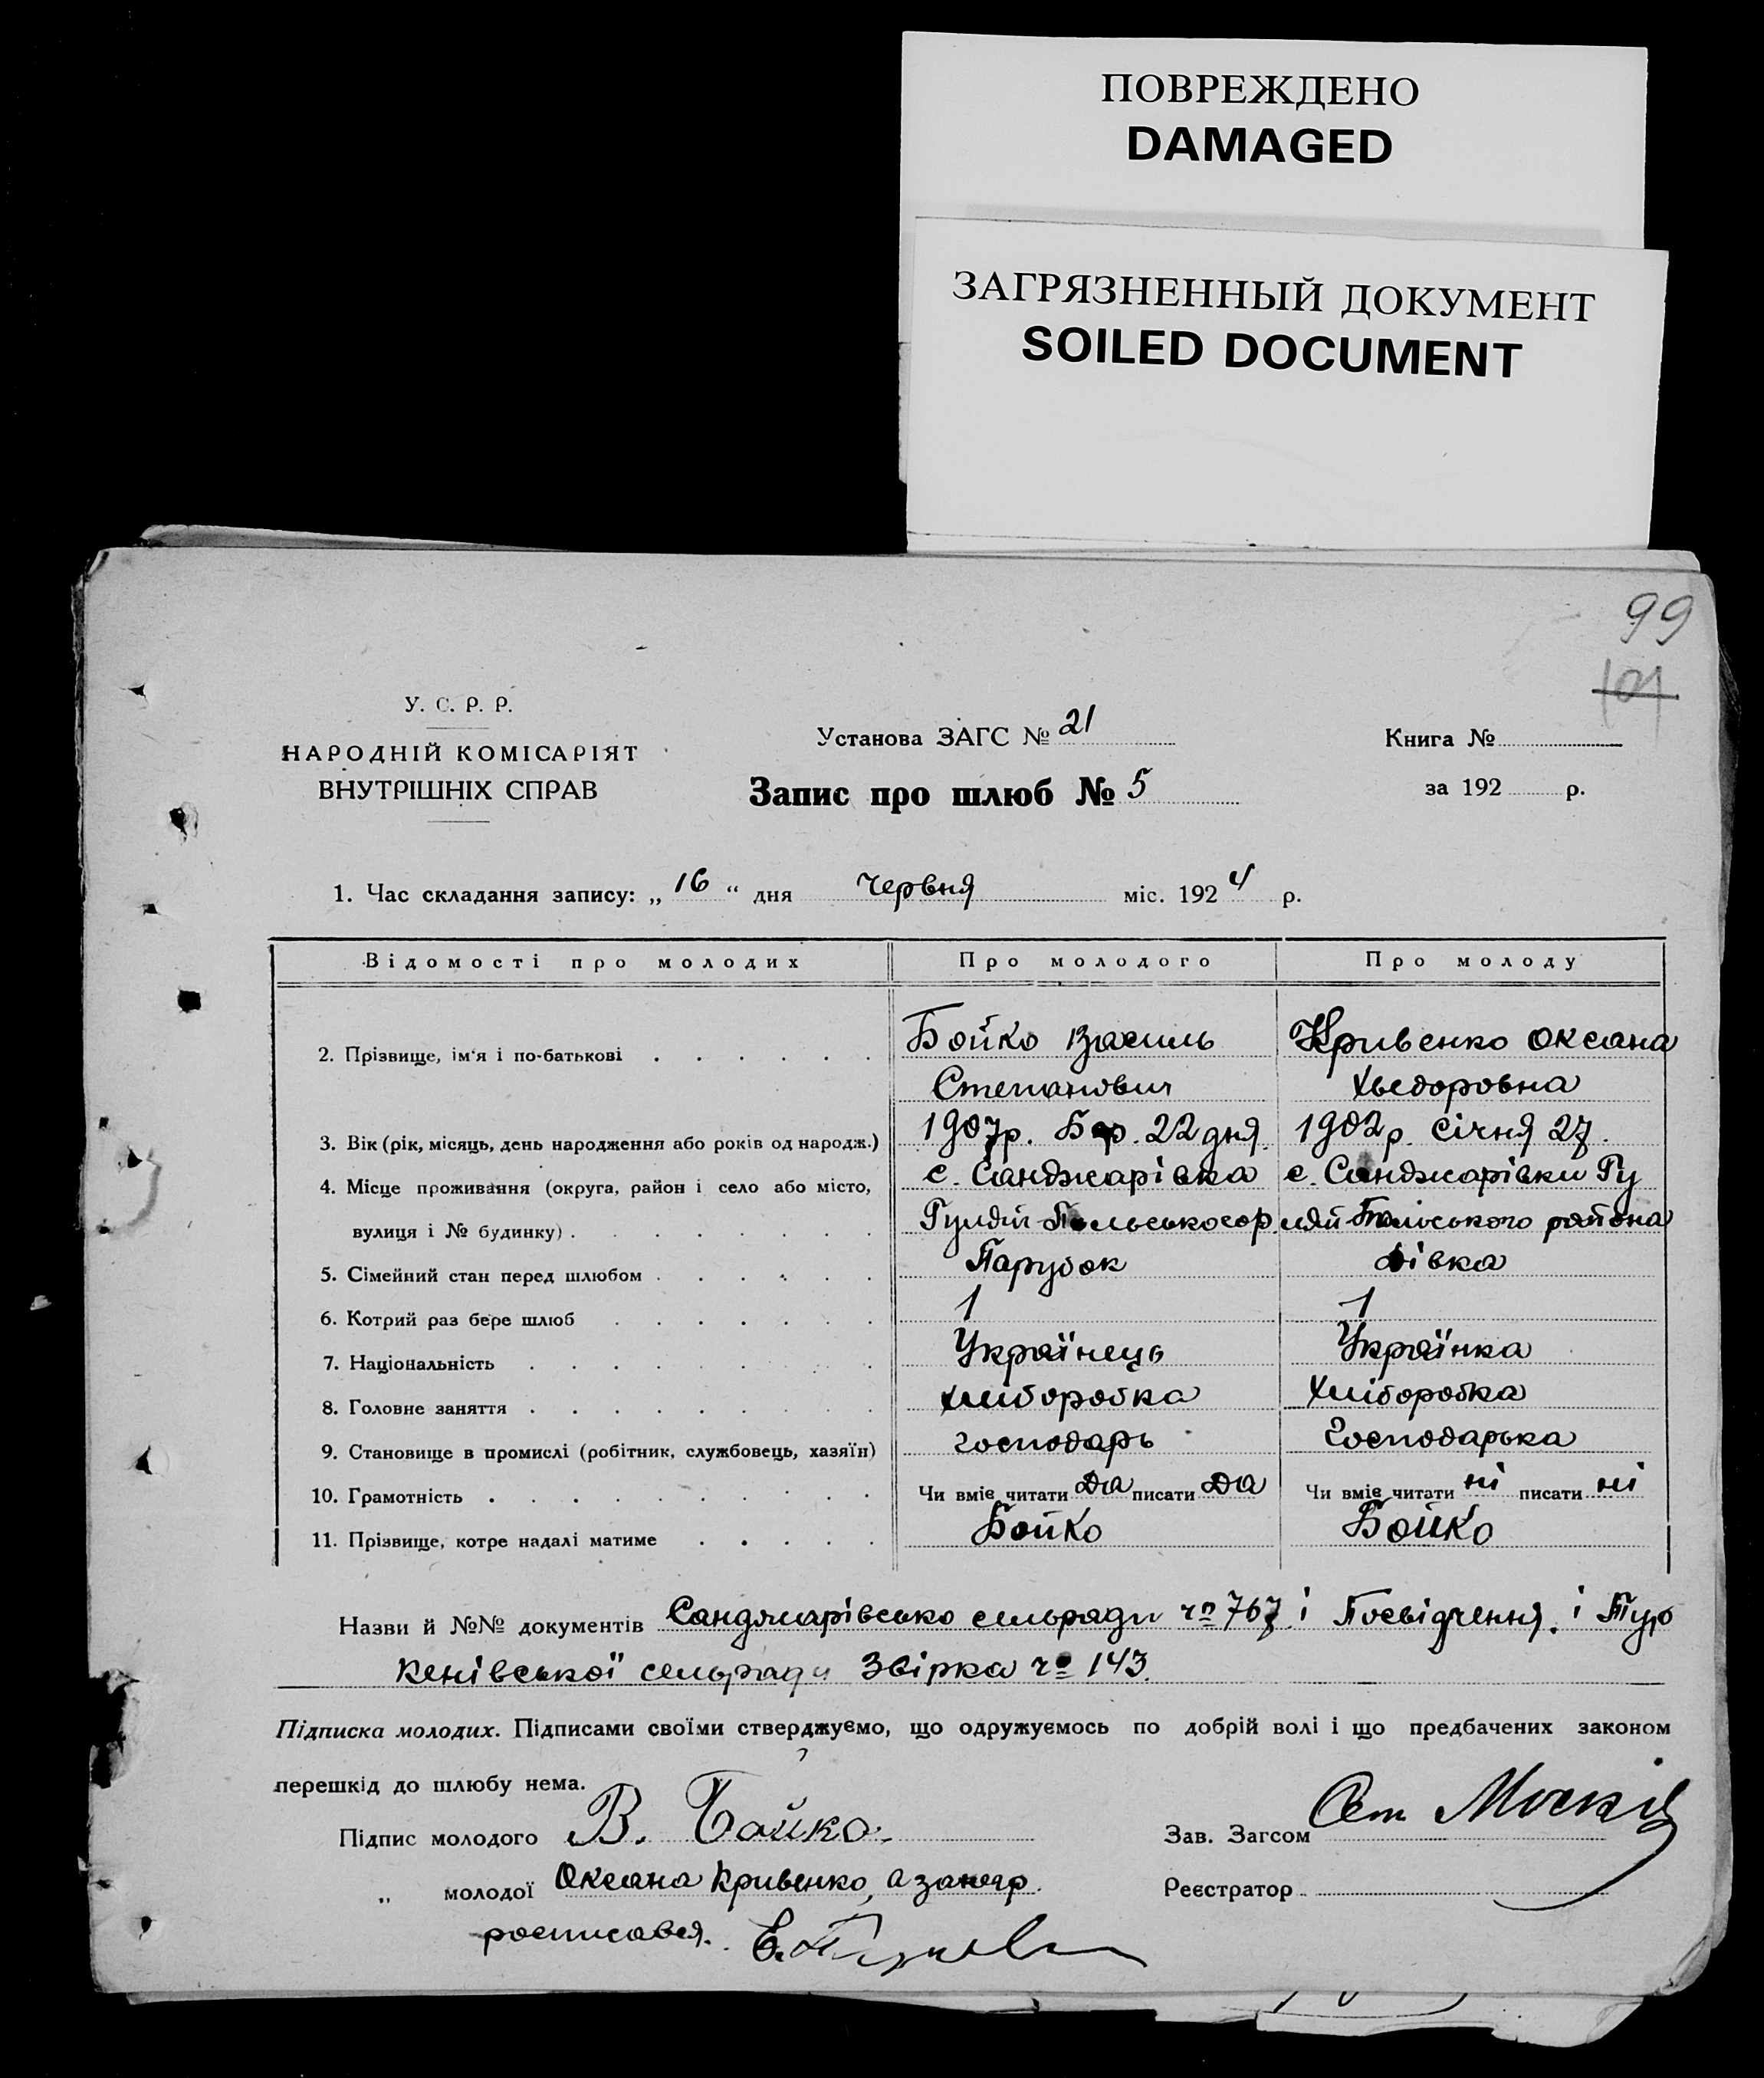 ПОВРЕЖДЕНО
DAMAGED
ЗАГРЯЗНЕННЫЙ ДОКУМЕНТ
SOILED DOCUMENT
99
101
У. С. Р. Р.
НАРОДНІЙ КОМІСАРІЯТ
ВНУТРІШНІХ СПРАВ
Установа ЗАГС № 21
Запис про шлюб № 5
Книга №
за 192 р.
1. Час складання запису: „ 16 “ дня червня міс. 1924 р.
Відомості про молодих Про молодого Про молоду
2. Прізвище, ім'я і по-батькові Бойко Василь Кривенко Оксана
Степанович Хведоровна
3. Вік (рік, місяць, день народження або років од народж.) 1907р. Бер. 22 дня 1902р. Січня 27.
4. Місце проживання (округа, район і село або місто, с. Санджарівка с. Санджарівки Гу
вулиця і № будинку) района
5. Сімейний стан перед шлюбом Парубок Дівка
6. Котрий раз бере шлюб 1 1
7. Національність Українець Українка
8. Головне заняття хліборобка Хліборобка
9. Становище в промислі (робітник, службовець, хазяїн) господарь Господарька
10. Грамотність Чи вміє читати Да писати Да Чи вміє читати ні писати ні
11. Прізвище, котре надалі матиме Бойко Бойко
Назви й №№ документів Санджарівсько сельради № 767 і Посвідчення. і Тур
кенівської сельради Звірка № 143.
Підписка молодих. Підписами своїми стверджуємо, що одружуємось по добрій волі і що предбачених законом
перешкід до шлюбу нема.
Підпис молодого В. Бойко. Зав. Загсом
„ молодої Оксана Кривенко, а за Реєстратор
росписався.